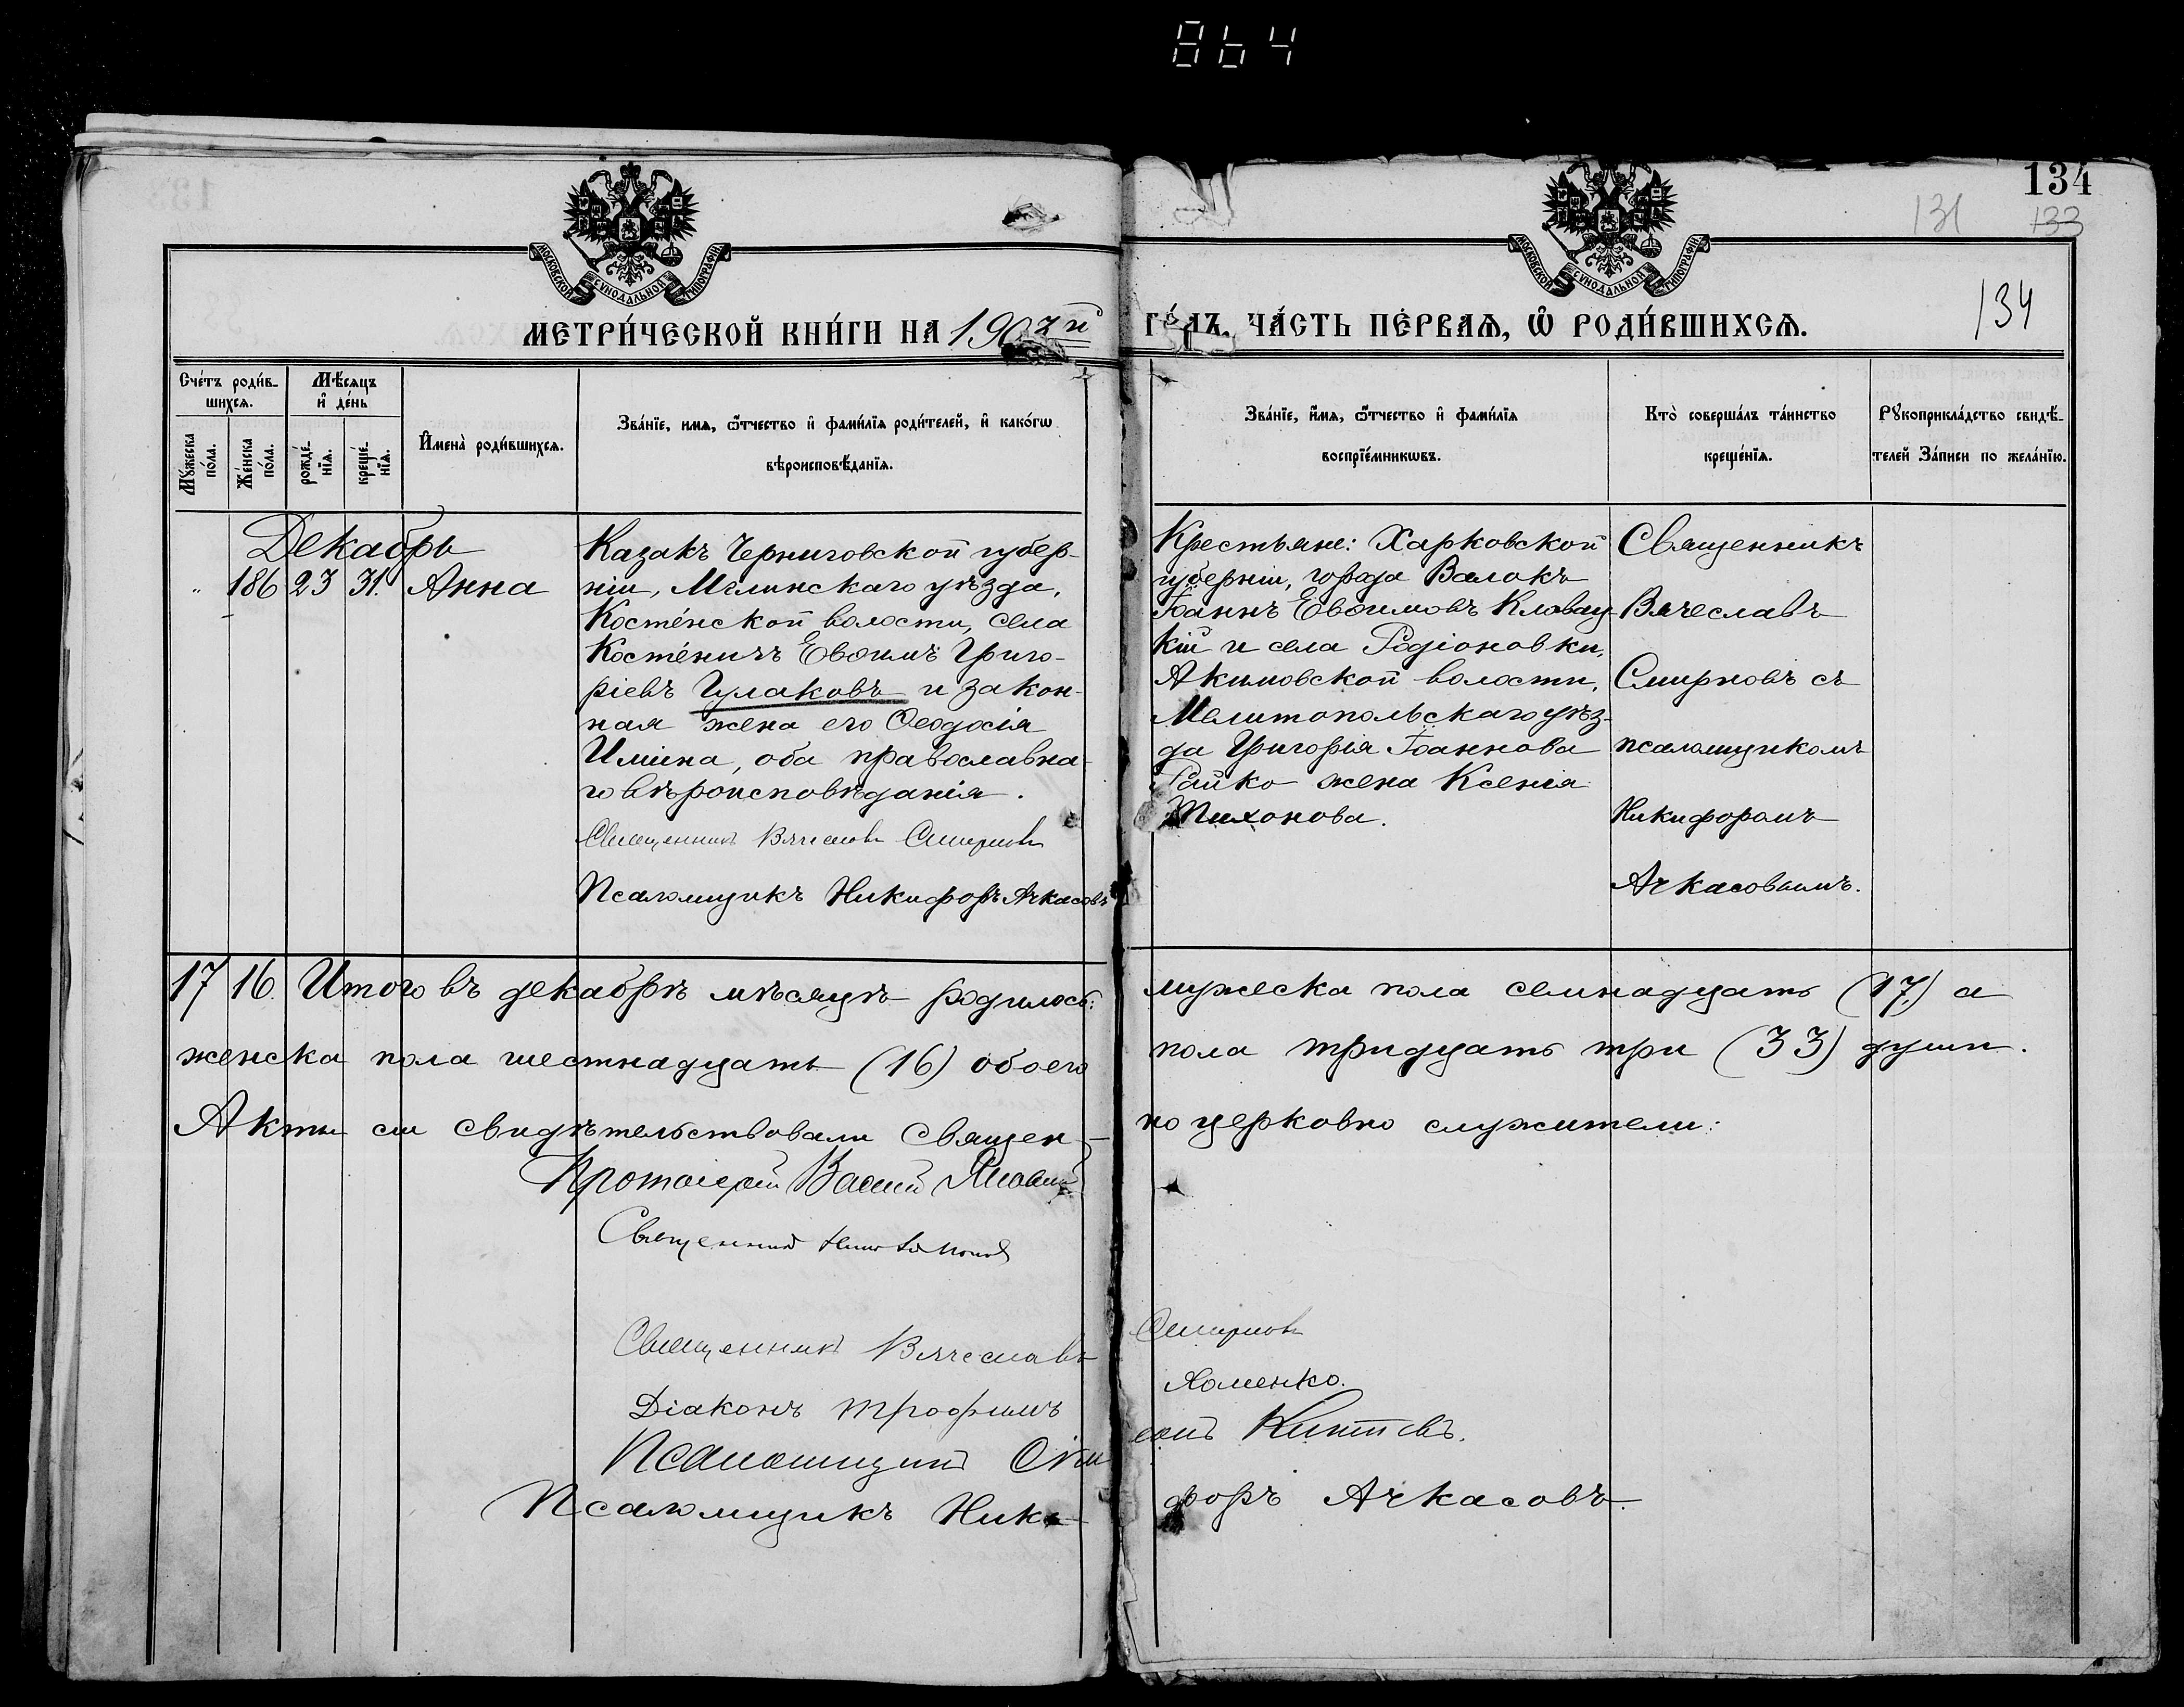 864
134
131 133
134
МОСКОВСКОЙ СУНОДАЛЬНОЙ ТИПОГРАФІИ
МОСКОВСКОЙ СУНОДАЛЬНОЙ ТИПОГРАФІИ
МЕТРИ́ЧЕСКОЙ КНИ́ГИ НА 1903й
ГО́ДЪ, ЧА́СТЬ ПЕ́РВАѦ, Ѡ҆ РОДИ́ВШИХСѦ.
Сче́тъ роди́в-
шихсѧ.
Мѣ́сѧцъ
и҆ де́нь
Мꙋ́жеска
по́ла.
Же́нска
по́ла.
рожде́-
нїѧ.
креще́-
нїѧ.
И҆мена̀ роди́вшихсѧ.
Зва́нїе, имѧ, ѻ҆́тчество и҆ фами́лїѧ роди́телей, и҆ како́гѡ
вѣроисповѣ́данїѧ.
Зва́нїе, и҆́мѧ, ѻ҆́тчество и҆ фами́лїѧ
воспрїе́мникѡвъ.
Кто̀ соверша́лъ та́инство
креще́нїѧ.
Рꙋкоприкла́дство свидѣ́-
телей За́писи по жела́нїю.
Декабрь
" 186 23 31. Анна
Казакъ Черниговской губер-
ніи, Мглинскаго уѣзда,
Косте́нской волости, села
Косте́ничъ Евѳимъ Григо-
ріевъ Гулаковъ и закон-
ная жена его Ѳеодосія
Ильина, оба православна-
го вѣроисповѣданія.
Священникъ Вячеславъ Смирновъ
Псаломщикъ Никифоръ Ачкасовъ
Крестьяне: Харковской
губерніи, города Валокъ
Іоаннъ Евѳимовъ
кій и села Родіоновки,
Акимовской волости,
Мелитопольскаго уѣз-
да Григорія Іоаннова
Райко жена Ксенія
Тихонова.
Священникъ
Вячеславъ
Смирновъ съ
псаломщикомъ
Никифоромъ
Ачкасовымъ.
17 16. Итого въ декабрѣ мѣсяцѣ родилось: мужеска пола семнадцать (17) а
женска пола шестнадцать (16) обоего пола тридцать три (33) души.
Акты сіи свидѣтельствовали священ- но церковно служители:
Протоіерей
Священникъ
Священникъ Вячеславъ Смирновъ
Діаконъ Трофимъ Хоменко.
Псаломщикъ
Псаломщикъ Ники- форъ Ачкасовъ.